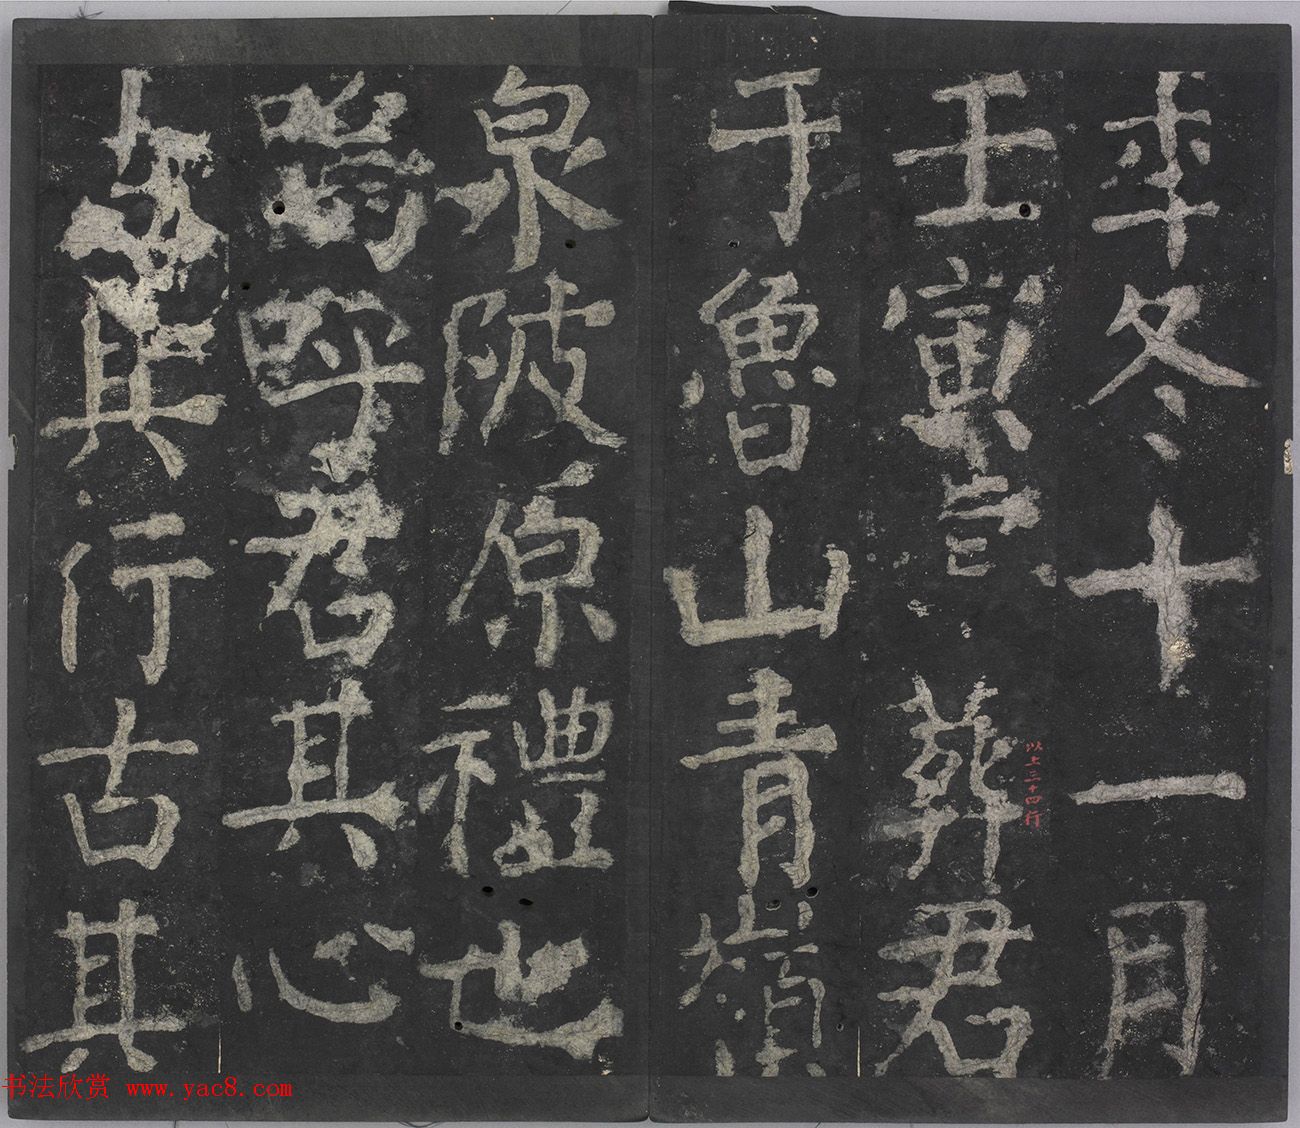 年冬十一月
壬寅葬君
以上三十四行
于魯山青嶺
泉陂原禮也
嗚呼君其心
古其行古其
书法欣赏 www.yac8.com